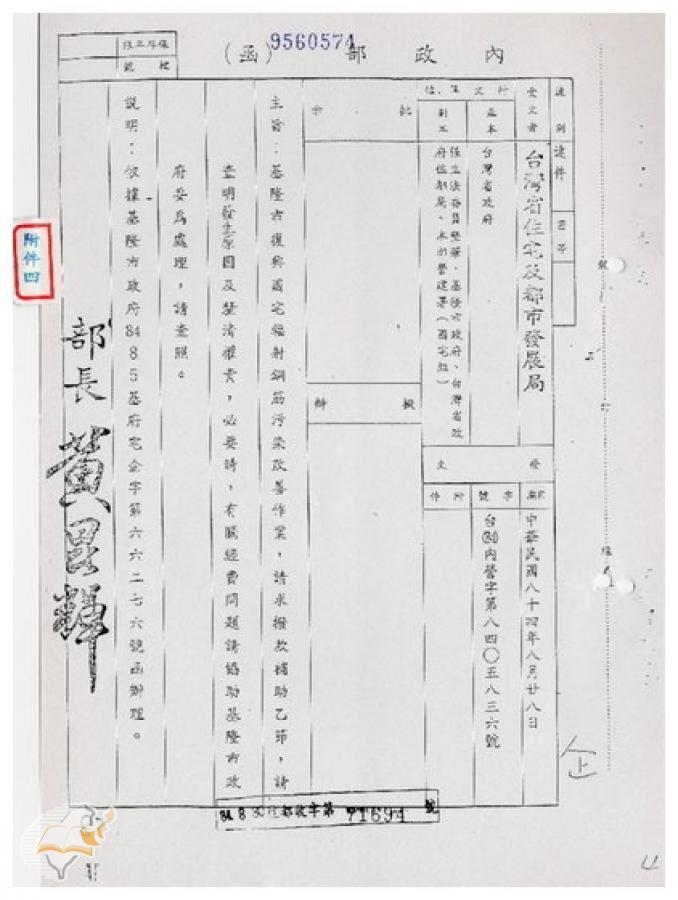 內政部（函）
9560574
保存年限
檔號
速別
速件
密等
受文者
台灣省住宅及都市發展局
行文單位
正本
台灣省政府
副本
府住都局、本部營建署（國宅組）
批示
擬辦
發文
日期
中華民國八十四年八月廿八日
字號
台(84)內營字第八四〇五八三六號
附件
主旨：基隆市復興國宅輻射鋼筋污染改善作業，請求撥款補助乙節，請
查明發生原因及釐清權責，必要時，有關經費問題請協助基隆市政
府妥為處理，請查照。
說明：依據基隆市政府84 8 5基府宅企字第六六二七六號函辦理。
部長 黃昆輝
附件四
84 8 30住都收字第 71694 號
企